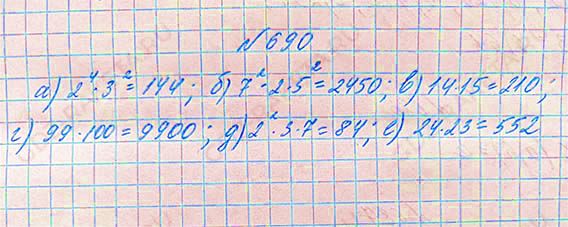 №690
а) 2⁴·3²=144; б) 7²·2·5²=2450; в) 14·15=210;
г) 99·100=9900; д) 2²·3·7=84; е) 24·23=552